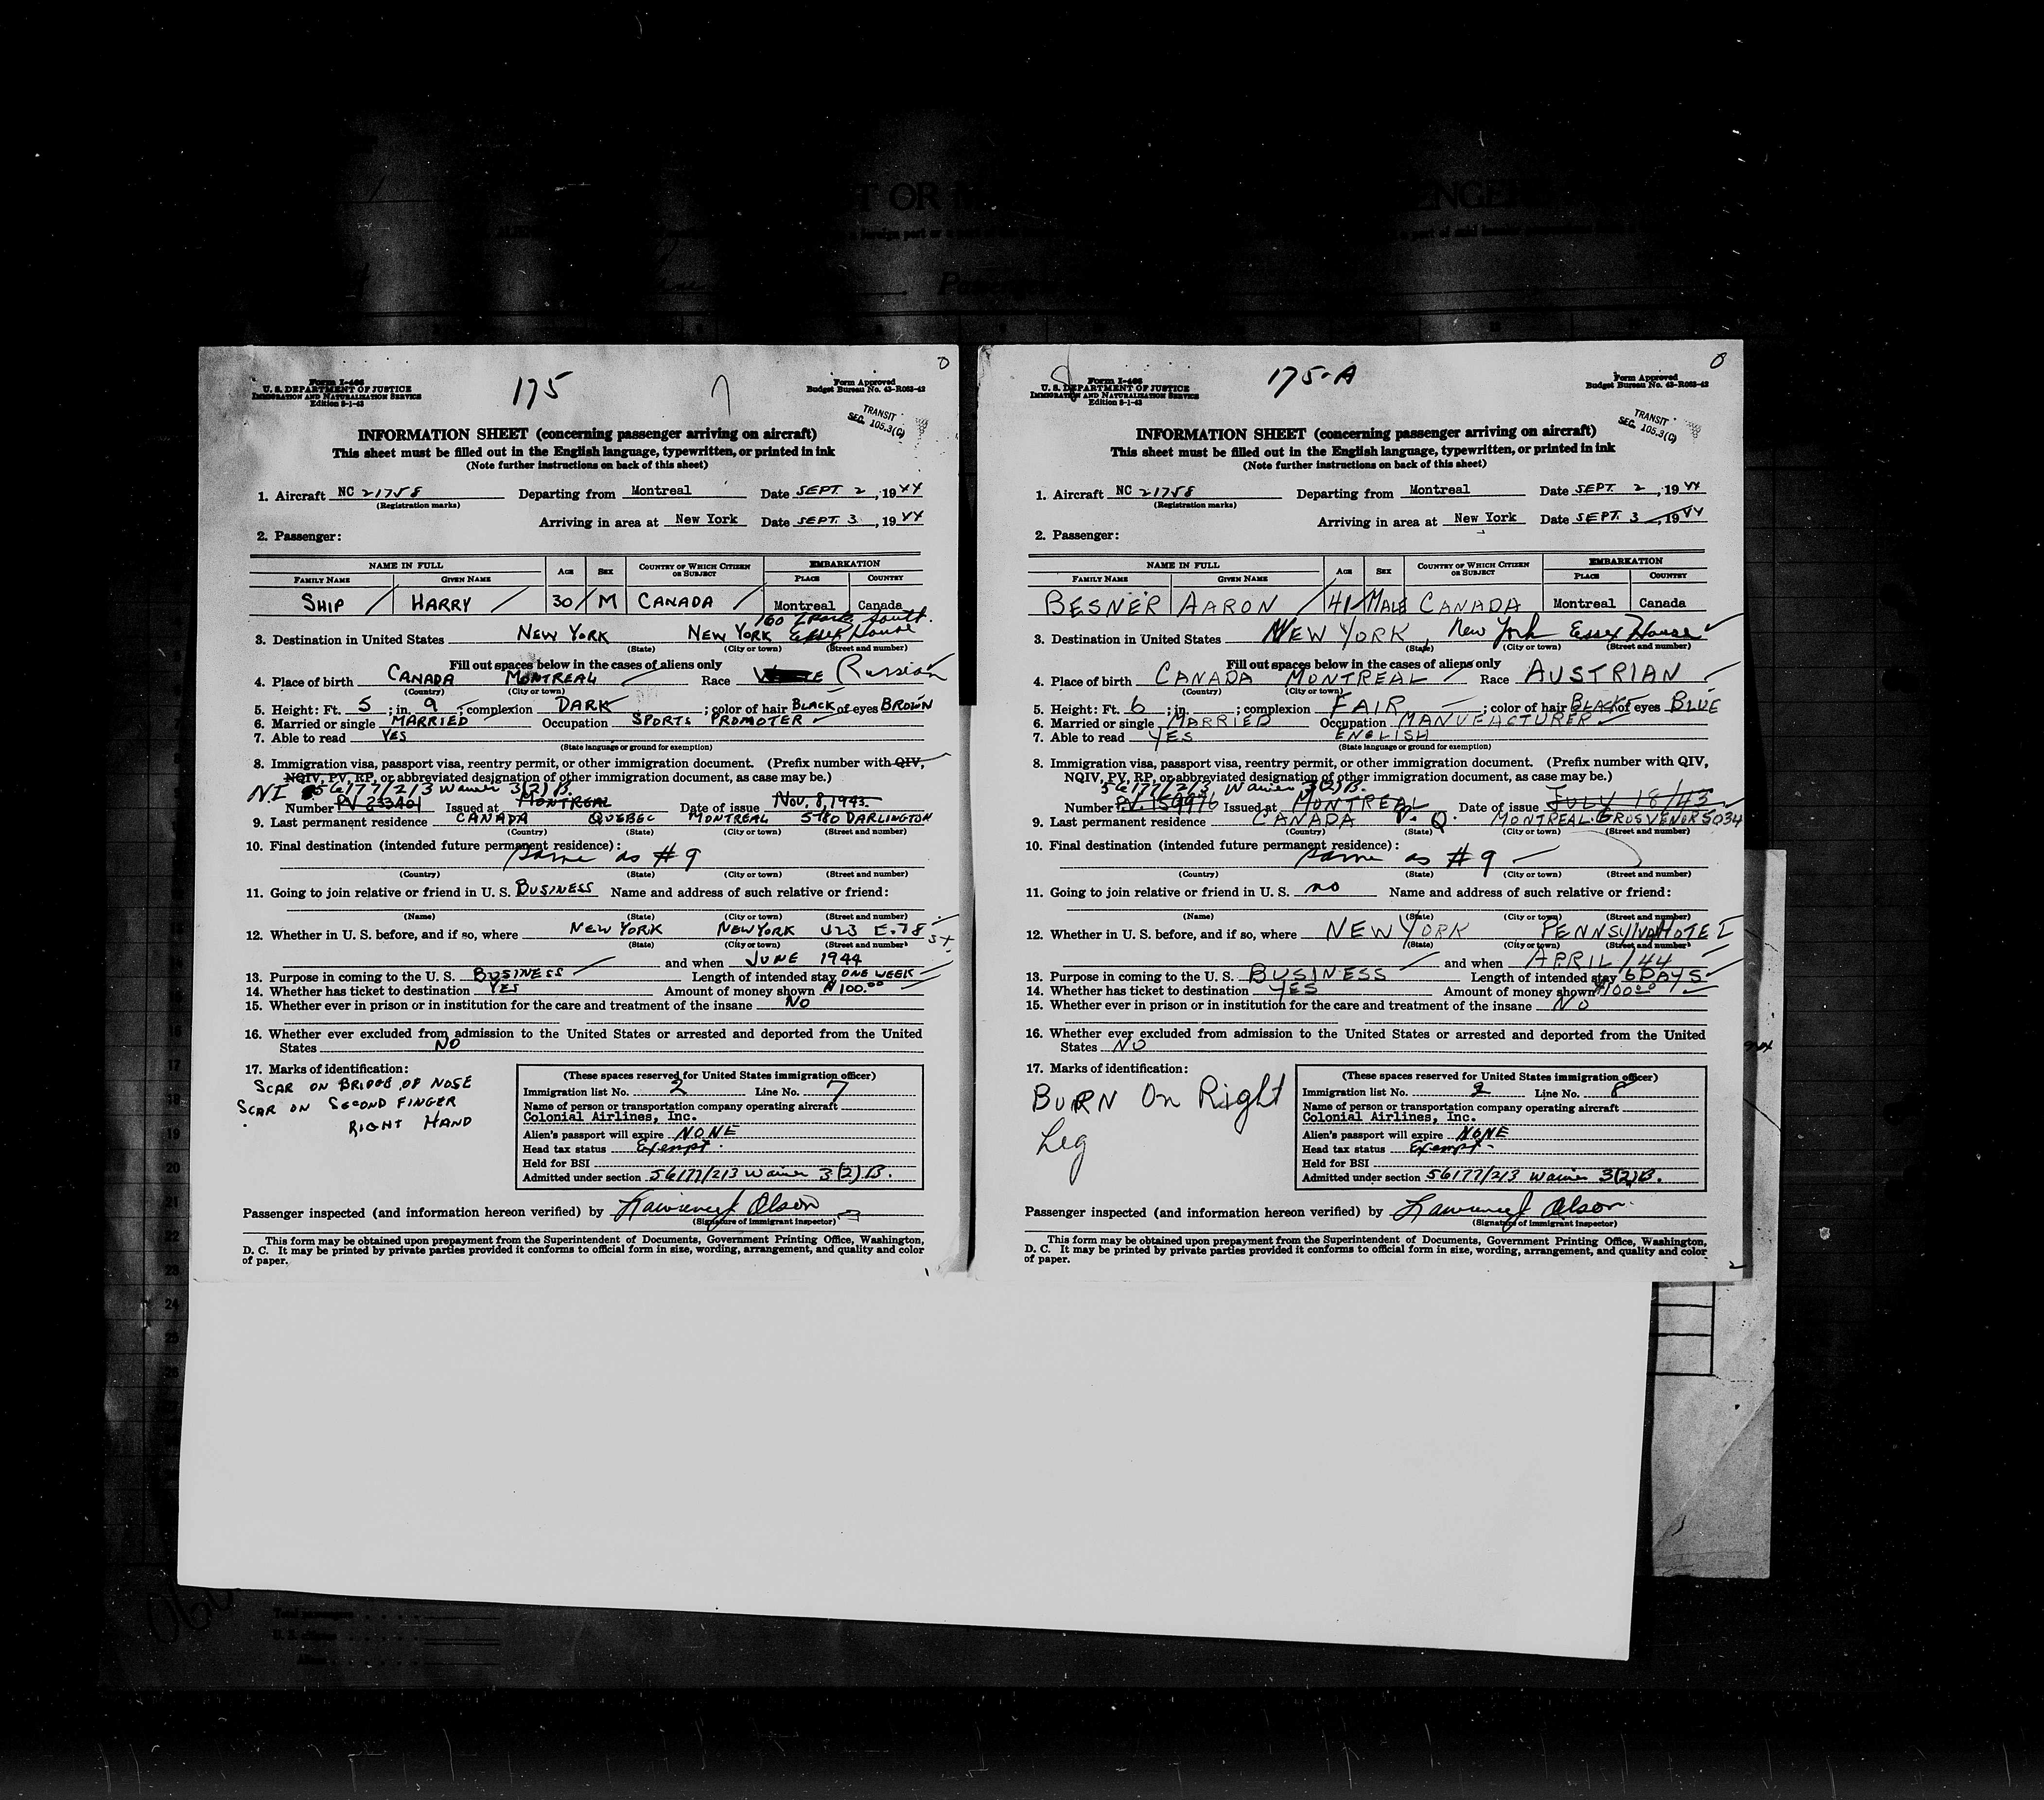 175
Form I-466
U. S. DEPARTMENT OF JUSTICE
IMMIGRATION AND NATURALIZATION SERVICE
Edition 8-1-43
Form Approved
Budget Bureau No. 43-R063-42
TRANSIT
SEC. 105.3(C)
INFORMATION SHEET (concerning passenger arriving on aircraft)
This sheet must be filled out in the English language, typewritten, or printed in ink
(Note further instructions on back of this sheet)
1. Aircraft NC 21758 Departing from Montreal Date SEPT. 2, 1944
(Registration marks)
Arriving in area at New York Date SEPT. 3, 1944
2. Passenger:
NAME IN FULL AGE SEX COUNTRY OF WHICH CITIZEN OR SUBJECT EMBARKATION
FAMILY NAME GIVEN NAME PLACE COUNTRY
SHIP HARRY 30 M CANADA Montreal Canada
160 South.
3. Destination in United States NEW YORK NEW YORK Essex House
(State) (City or town) (Street and number)
Fill out spaces below in the cases of aliens only
4. Place of birth CANADA MONTREAL Race Russian
(Country) (City or town)
5. Height: Ft. 5; in. 9; complexion DARK; color of hair BLACK of eyes BROWN
6. Married or single MARRIED Occupation SPORTS PROMOTER
7. Able to read YES
(State language or ground for exemption)
8. Immigration visa, passport visa, reentry permit, or other immigration document. (Prefix number with QIV,
NQIV, PV, RP, or abbreviated designation of other immigration document, as case may be.)
NI 56177/213 Waiver 3(2)B.
Number PV 233401 Issued at MONTREAL Date of issue Nov. 8, 1943.
9. Last permanent residence CANADA QUEBEC MONTREAL DARLINGTON
(Country) (State) (City or town) (Street and number)
10. Final destination (intended future permanent residence):
same as #9
(Country) (State) (City or town) (Street and number)
11. Going to join relative or friend in U. S. BUSINESS Name and address of such relative or friend:
(Name) (State) (City or town) (Street and number)
12. Whether in U. S. before, and if so, where NEW YORK NEW YORK E. 78 St.
(State) (City or town) (Street and number)
and when JUNE 1944
13. Purpose in coming to the U. S. BUSINESS Length of intended stay ONE WEEK
14. Whether has ticket to destination YES Amount of money shown $100.00
15. Whether ever in prison or in institution for the care and treatment of the insane NO
16. Whether ever excluded from admission to the United States or arrested and deported from the United
States NO
17. Marks of identification:
SCAR ON BRIDGE OF NOSE
SCAR ON SECOND FINGER
RIGHT HAND
(These spaces reserved for United States immigration officer)
Immigration list No. 2 Line No. 7
Name of person or transportation company operating aircraft
Colonial Airlines, Inc.
Alien's passport will expire NONE
Head tax status Exempt.
Held for BSI
Admitted under section 56177/213 Waiver 3(2)B.
Passenger inspected (and information hereon verified) by Lawrence J Olson
(Signature of immigrant inspector)
This form may be obtained upon prepayment from the Superintendent of Documents, Government Printing Office, Washington,
D. C. It may be printed by private parties provided it conforms to official form in size, wording, arrangement, and quality and color
of paper.
175-A
Form I-466
U. S. DEPARTMENT OF JUSTICE
IMMIGRATION AND NATURALIZATION SERVICE
Edition 8-1-43
Form Approved
Budget Bureau No. 43-R063-42
TRANSIT
SEC. 105.3(C)
INFORMATION SHEET (concerning passenger arriving on aircraft)
This sheet must be filled out in the English language, typewritten, or printed in ink
(Note further instructions on back of this sheet)
1. Aircraft NC 21758 Departing from Montreal Date SEPT. 2, 1944
(Registration marks)
Arriving in area at New York Date SEPT. 3, 1944
2. Passenger:
NAME IN FULL AGE SEX COUNTRY OF WHICH CITIZEN OR SUBJECT EMBARKATION
FAMILY NAME GIVEN NAME PLACE COUNTRY
BESNER AARON 41 MALE CANADA Montreal Canada
3. Destination in United States NEW YORK, New York Essex House
(State) (City or town) (Street and number)
Fill out spaces below in the cases of aliens only
4. Place of birth CANADA MONTREAL Race AUSTRIAN
(Country) (City or town)
5. Height: Ft. 6; in. ; complexion FAIR; color of hair BLACK of eyes BLUE
6. Married or single MARRIED Occupation MANUFACTURER
7. Able to read YES ENGLISH
(State language or ground for exemption)
8. Immigration visa, passport visa, reentry permit, or other immigration document. (Prefix number with QIV,
NQIV, PV, RP, or abbreviated designation of other immigration document, as case may be.)
56177/213 Waiver 3(2)B.
Number PV. 159976 Issued at MONTREAL Date of issue JULY 18/43
9. Last permanent residence CANADA P. Q. MONTREAL GROSVENOR 5034
(Country) (State) (City or town) (Street and number)
10. Final destination (intended future permanent residence):
same as #9
(Country) (State) (City or town) (Street and number)
11. Going to join relative or friend in U. S. no Name and address of such relative or friend:
(Name) (State) (City or town) (Street and number)
12. Whether in U. S. before, and if so, where NEW YORK PENNSYLVA HOTEL
(State) (City or town) (Street and number)
and when APRIL /44
13. Purpose in coming to the U. S. BUSINESS Length of intended stay 6 DAYS
14. Whether has ticket to destination YES Amount of money shown $100.00
15. Whether ever in prison or in institution for the care and treatment of the insane NO
16. Whether ever excluded from admission to the United States or arrested and deported from the United
States NO
17. Marks of identification:
BURN On Right
Leg
(These spaces reserved for United States immigration officer)
Immigration list No. 2 Line No. 8
Name of person or transportation company operating aircraft
Colonial Airlines, Inc.
Alien's passport will expire NONE
Head tax status Exempt.
Held for BSI
Admitted under section 56177/213 Waiver 3(2)B.
Passenger inspected (and information hereon verified) by Lawrence J Olson
(Signature of immigrant inspector)
This form may be obtained upon prepayment from the Superintendent of Documents, Government Printing Office, Washington,
D. C. It may be printed by private parties provided it conforms to official form in size, wording, arrangement, and quality and color
of paper.